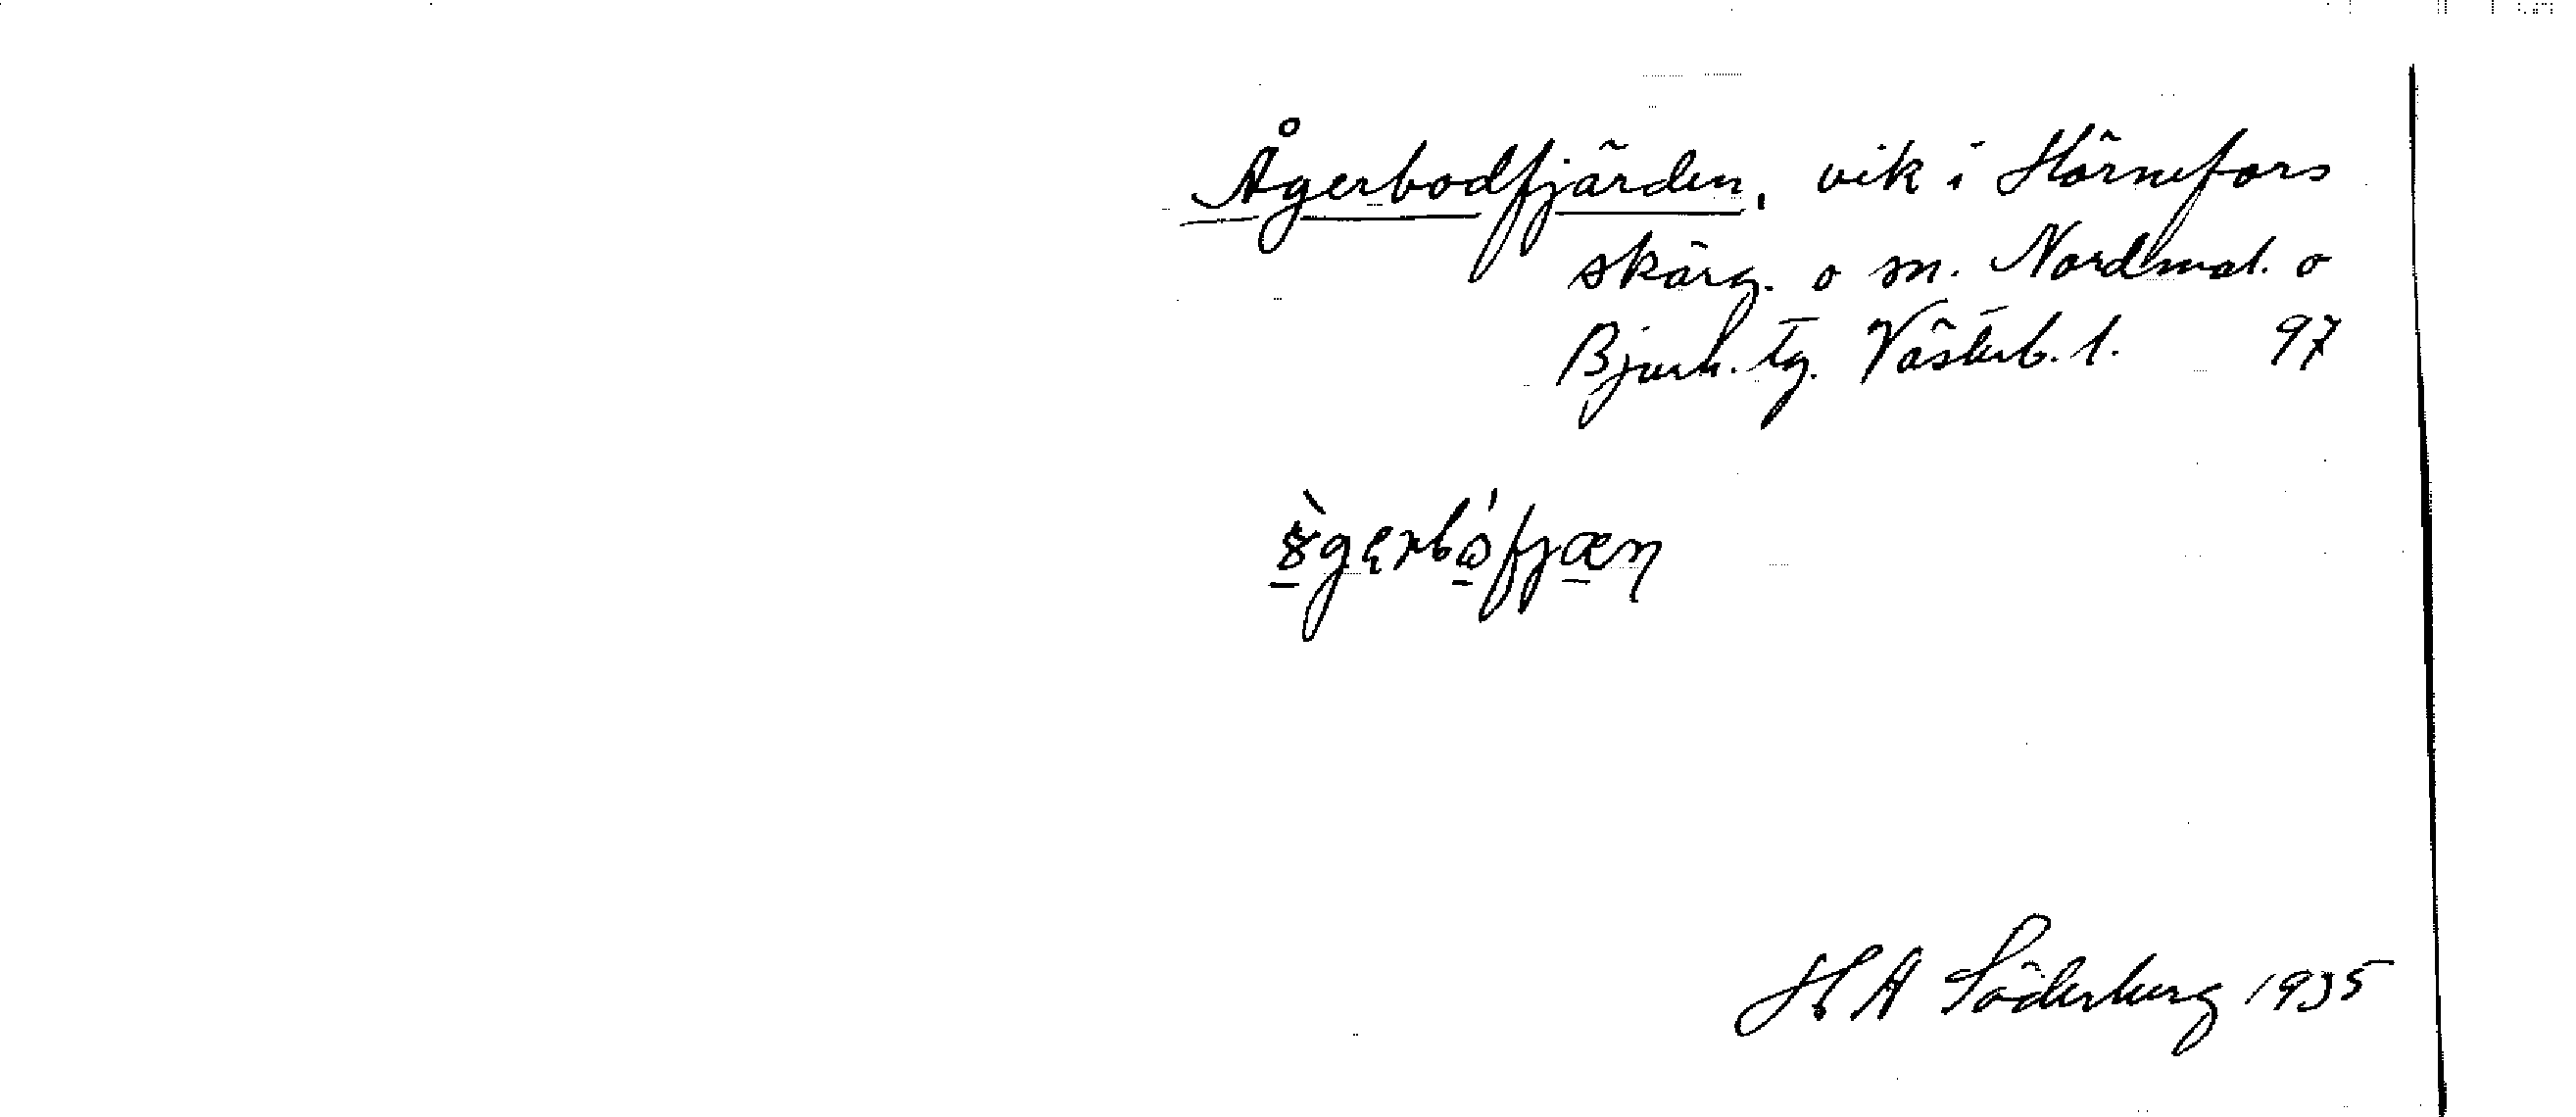 Ågerbodfjärden, vik i Hörnefors
skärg. o m. Nordmal. o
Bjurh. tg. Västerb. l. 97
H A Söderberg 1935